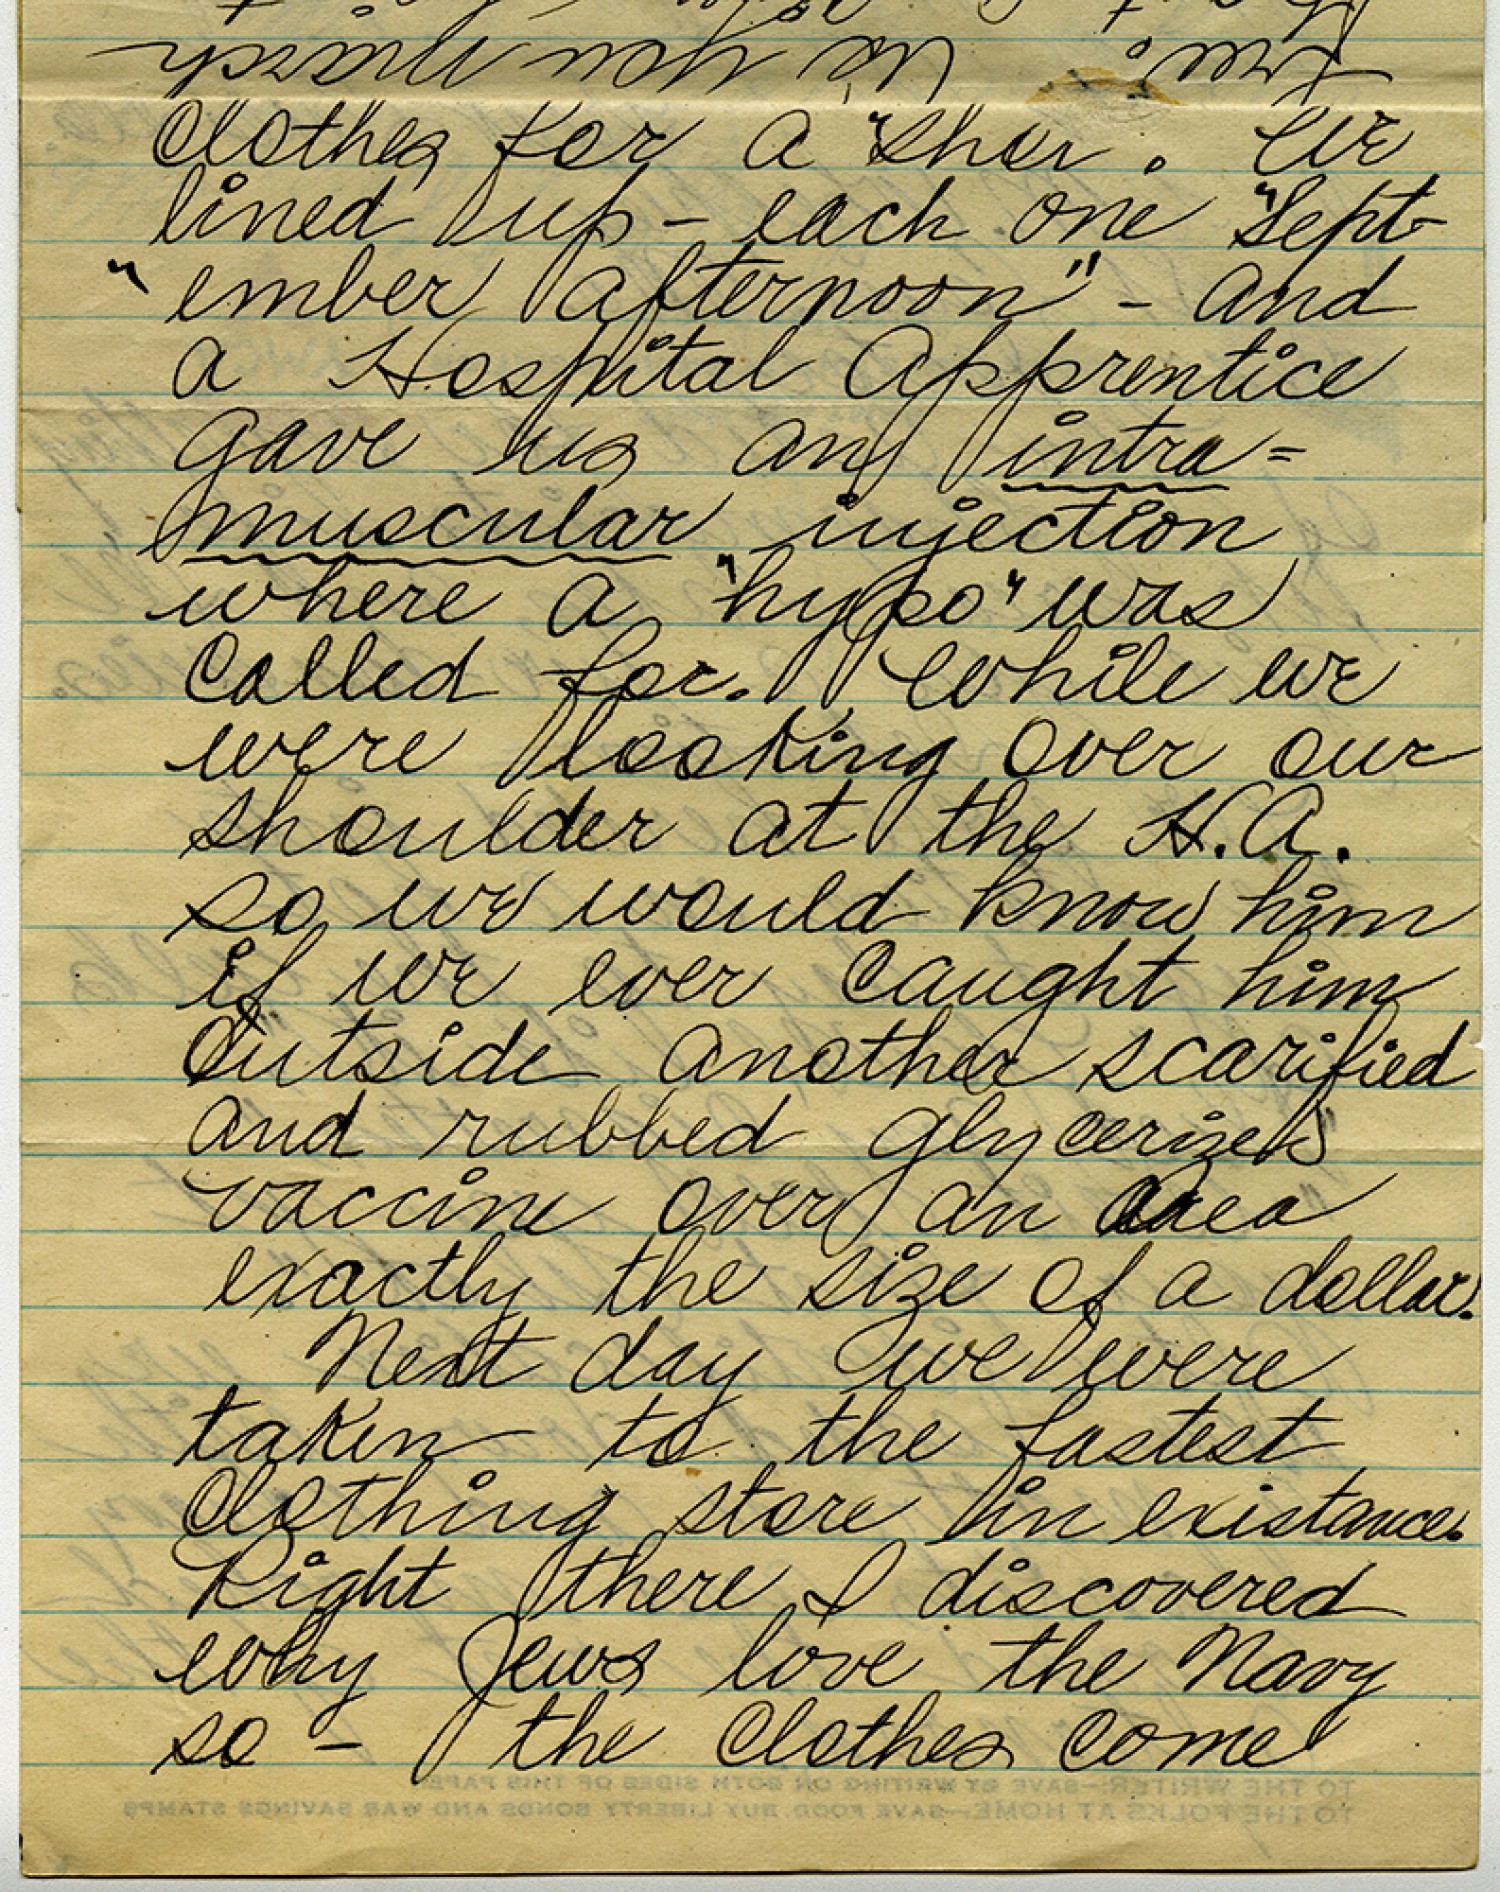 clothes for a "shor. We
lined up – each one "Sept-
"ember afternoon" – and
a Hospital Apprentice
gave us an intra=
muscular injection
where a "hypo" was
called for. While we
were looking over our
shoulder at the H.A.
so we would know him
if we ever caught him
outside another scarified
and rubbed glycerized
vaccine over an area
exactly the size of a dollar.
Next day we were
taken to the fastest
clothing store in existance.
Right there I discovered
why Jews love the Navy
so – the clothes come
TO THE WRITER:—SAVE BY WRITING ON BOTH SIDES OF THIS PAPER
TO THE FOLKS AT HOME—SAVE FOOD, BUY LIBERTY BONDS AND WAR SAVINGS STAMPS